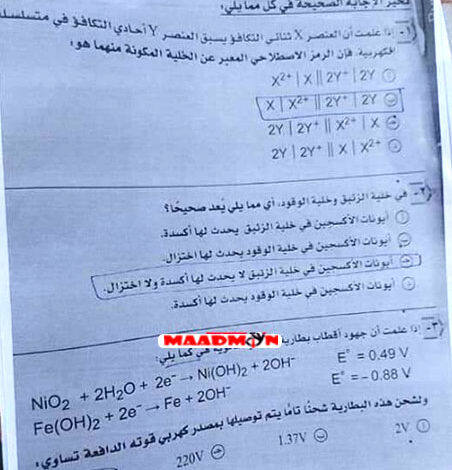 تخير الإجابة الصحيحة في كل مما يلي:
١- إذا علمت أن العنصر X ثنائي التكافؤ يسبق العنصر Y أحادي التكافؤ في متسلسلة
الكهربية، فإن الرمز الاصطلاحي المعبر عن الخلية المكونة منهما هو:
أ X²⁺ | X || 2Y⁺ | 2Y
ب X | X²⁺ || 2Y⁺ | 2Y
ج 2Y | 2Y⁺ || X²⁺ | X
د 2Y | 2Y⁺ || X | X²⁺
٢- في خلية الزئبق وخلية الوقود، أي مما يلي يُعد صحيحًا؟
أ أيونات الأكسجين في خلية الزئبق يحدث لها أكسدة.
ب أيونات الأكسجين في خلية الوقود يحدث لها اختزال.
ج أيونات الأكسجين في خلية الزئبق لا يحدث لها أكسدة ولا اختزال.
د أيونات الأكسجين في خلية الوقود يحدث لها أكسدة.
MAADMON
٣- إذا علمت أن جهود أقطاب بطارية هي كما يلي:
NiO₂ + 2H₂O + 2e⁻ → Ni(OH)₂ + 2OH⁻ E° = 0.49 V
Fe(OH)₂ + 2e⁻ → Fe + 2OH⁻ E° = - 0.88 V
ولشحن هذه البطارية شحنًا تامًا يتم توصيلها بمصدر كهربي قوته الدافعة تساوي:
أ 2V ب 1.37V ج 220V